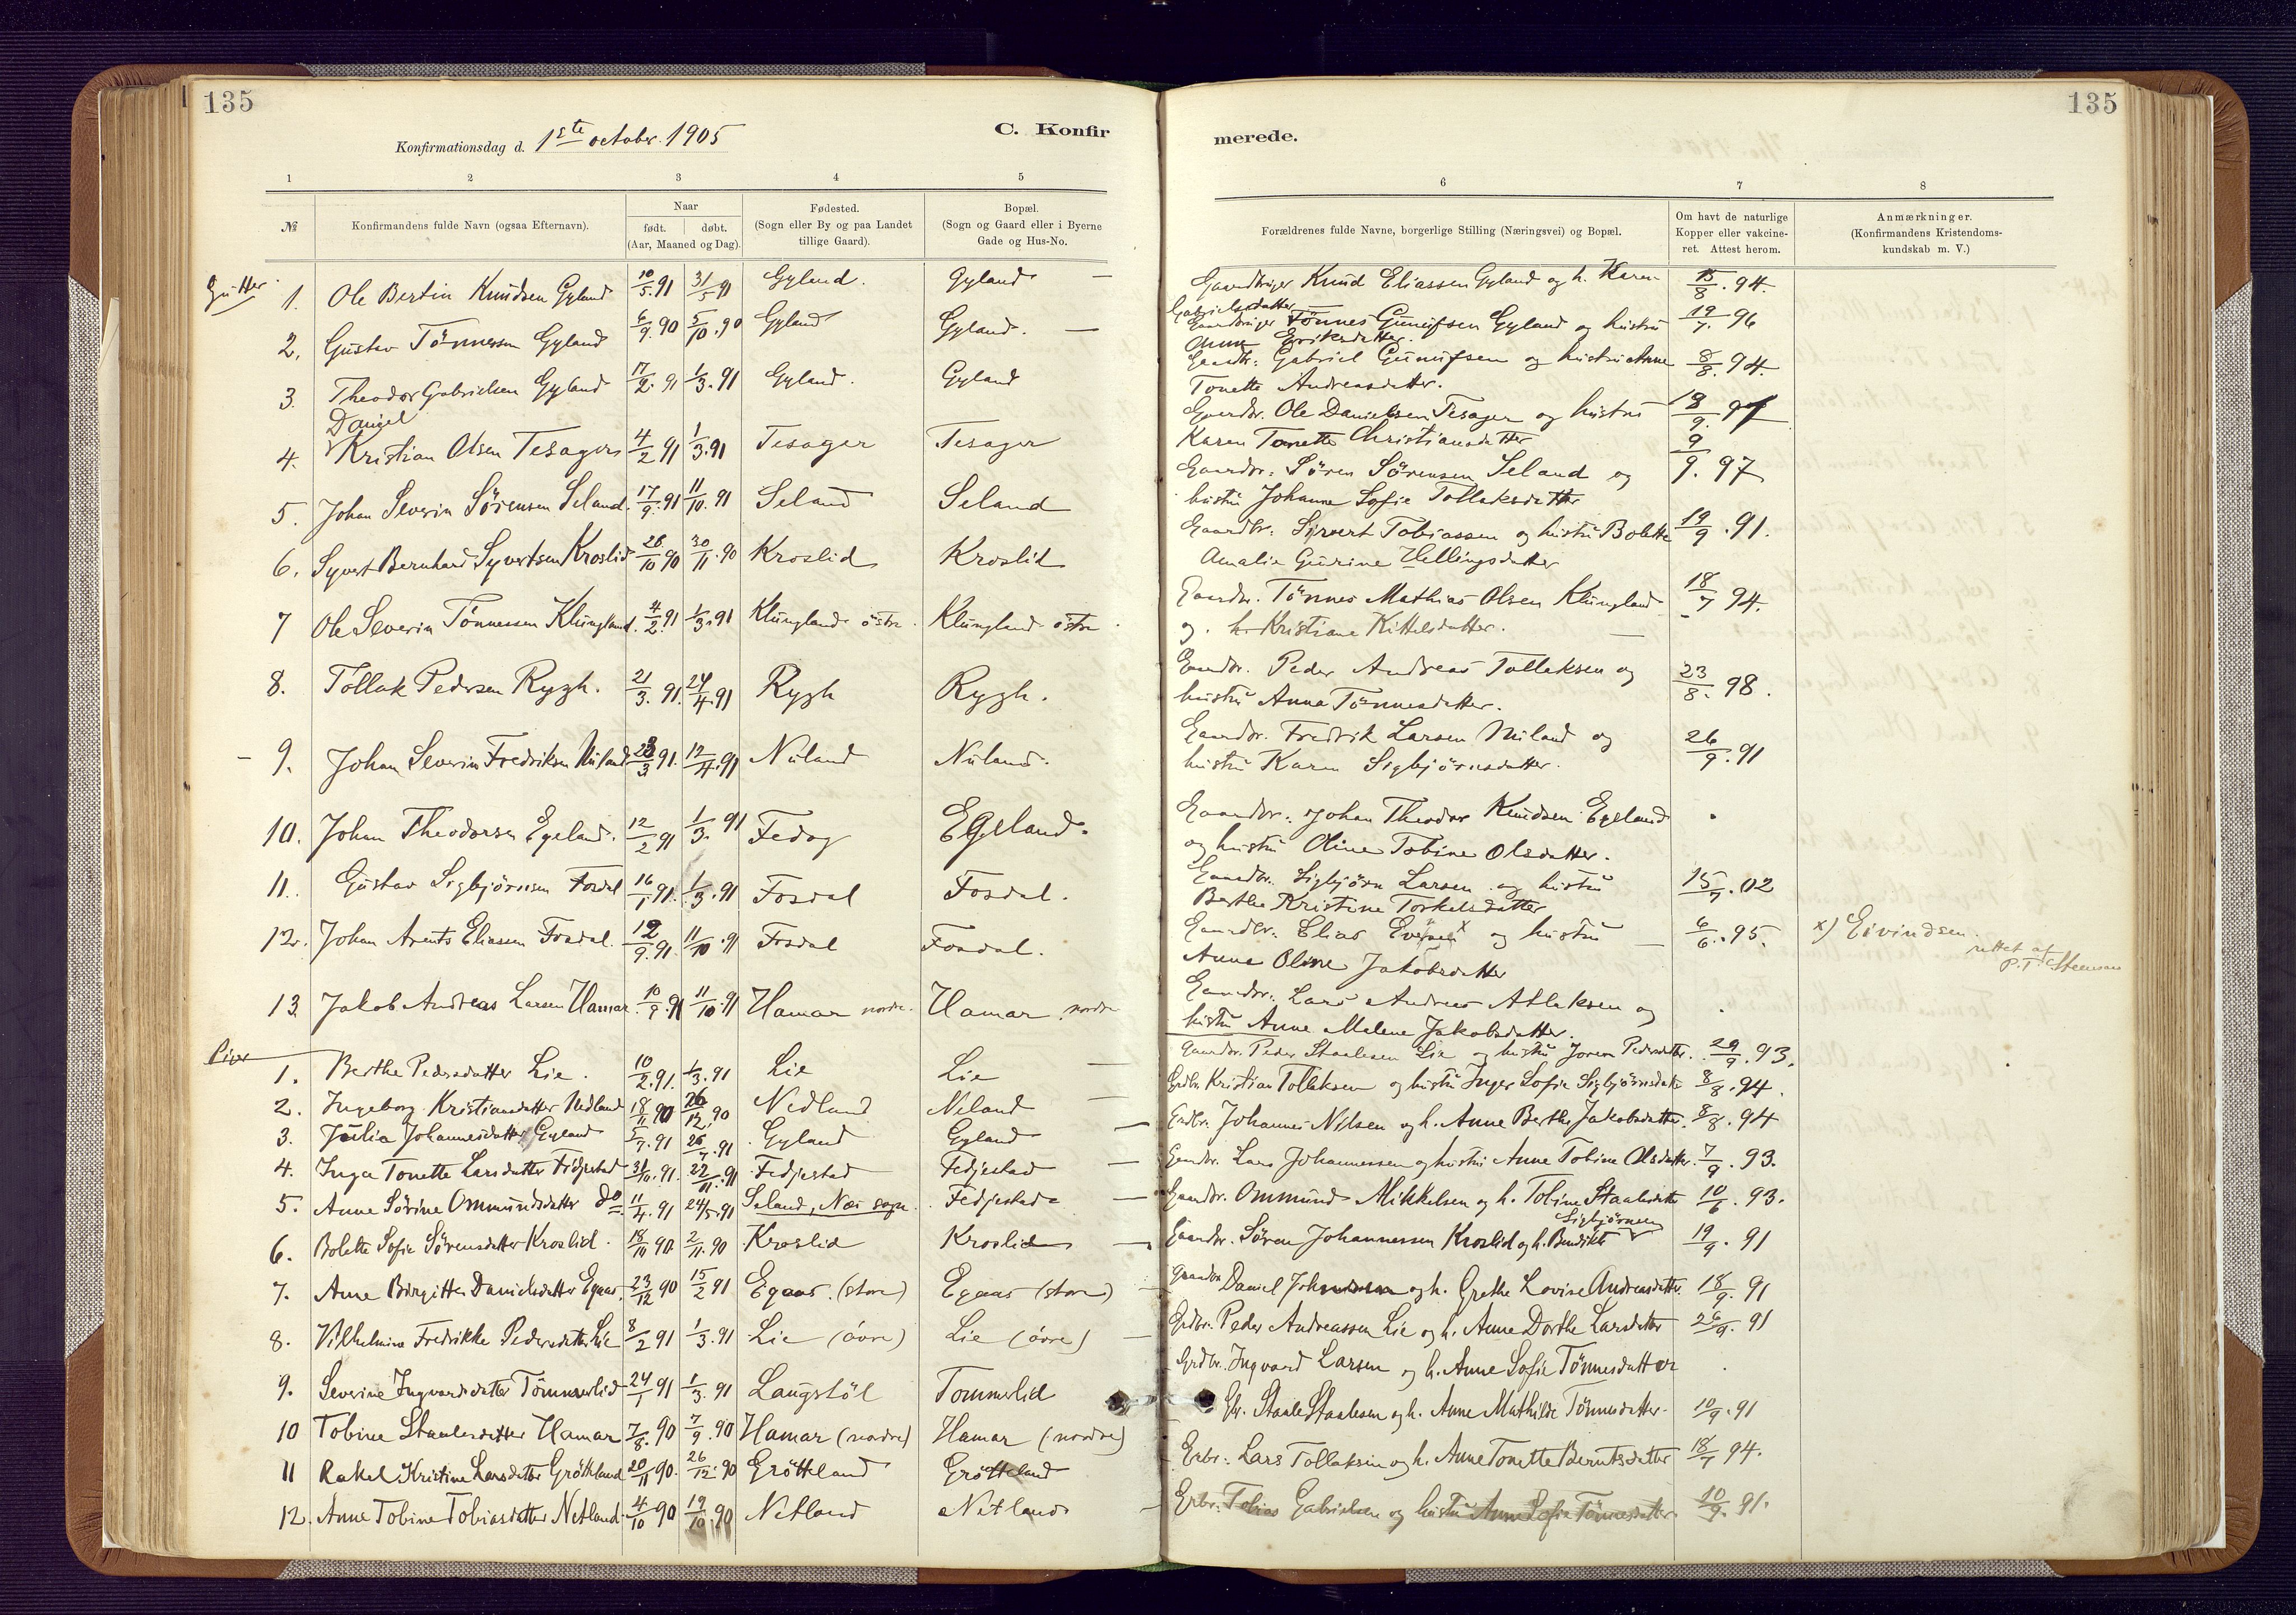 135
Konfirmationsdag d. 1ste october 1905
C. Konfir
1 2 3 4 5
№ Konfirmandens fulde Navn (ogsaa Efternavn). Naar født. døbt. (Aar, Maaned og Dag). Fødested. (Sogn eller By og paa Landet tillige Gaard). Bopæl. (Sogn og Gaard eller i Byerne Gade og Hus-No.
Gutter
1. Ole Bertin Knudsen Gyland 10/5.91 31/5 91 Gyland. Gyland —
2. Gustav Tönnessen Gyland 6/9.90 5/10.90 Gyland Gyland. —
3. Theodor Gabrielsen Gyland 17/2.91 1/3.91 Gyland. Gyland
Daniel
4. Kristian Olsen Tesager 4/2 91 1/3.91 Tesager Tesager
5. Johan Severin Sörensen Seland. 17/9.91 11/10.91 Seland Seland
6. Syvert Bernhard Syvertsen Kroslid 26/10 90 30/11.90 Kroslid Kroslid
7 Ole Severin Tönnessen Klungland. 4/2.91 1/3.91 Klungland östre. Klungland östre
8. Tollak Pedersen Rygh. 21/3.91. 24/4.91 Rygh Rygh.
9. Johan Severin Fredriksen Nuland 23/3 91. 12/4.91 Nuland Nuland.
10. Johan Theodorsen Egeland. 12/2 91 1/3.91 Fedog Egeland.
11. Gustav Sigbjörnsen Fosdal 16/1 91. 1/3.91 Fosdal Fosdal.
12. Johan Arents Eliassen Fosdal. 12/9.91. 11/10.91 Fosdal Fosdal.
13. Jakob Andreas Larsen Hamar. 10/9.91 11/10.91 Hamar nordre. Hamar nordre
Piger
1. Berthe Pedersdatter Lie. 10/2.91. 1/3.91 Lie Lie —
2. Ingeborg Kristiansdatter Nedland 18/11 90 26/12.90 Nedland Neland —
3. Julia Johannesdatter Gyland 5/7.91 26/7.91 Gyland Gyland —
4. Inga Tonette Larsdatter Fedjestad 31/10.91. 22/11.91 Fedjestad Fedjestad —
5. Anne Sörine Ommundsdatter do. 11/4.91 24/5.91 Seland, Næs sogn. Fedjestad —
6. Bolette Sofie Sörensdatter Kroslid. 18/10 90. 2/11.90 Kroslid Kroslid —
7. Anne Birgitte Danielsdatter Egaas. 23/12 90 15/2 91 Egaas. (store) Egaas (store)
8. Vilhelmine Fredrikke Pedersdatter Lie 8/2 91 1/3.91 Lie (övre) Lie (övre)
9. Severine Ingvardsdatter Tömmerlid 24/1 91 1/3.91 Langstöl Tommerlid
10 Tobine Staalesdatter Hamar 7/8.90 7/9.90 Hamar (nordre) Hamar (nordre)
11 Rakel Kristine Larsdatter Grötteland 20/11 90. 26/12.90 Grötteland Grötteland
12. Anne Tobine Tobiasdatter Netland. 4/10 90 19/10.90 Netland Netland
135
merede.
6 7 8
Forældrenes fulde Navne, borgerlige Stilling (Næringsvei) og Bopæl. Om havt de naturlige Kopper eller vakcineret. Attest herom. Anmærkninger. (Konfirmandens Kristendomskundskab m. V.)
Gaardbruger Knud Eliassen Gyland og h. Karen 15/8.94.
Gabrielsdatter
Gaardbruger Tönnes Gunufsen Gyland og hustru 19/7.96
Anne Eriksdatter.
Gaardbr: Gabriel Gunufsen og hustru Anne 8/8.94.
Tonette Andreasdatter.
Gaardbr. Ole Danielsen Tesager og hustru
Karen Tonette Christiansdatter
Gaardbr: Sören Sörensen Seland og 9/9.97
hustru Johanne Sofie Tollaksdatter
Gaardbr: Sivert Tobiassen og hustru Bolette 19/9.91.
Amalie Gurine Hellingsdatter
Gaardbr. Tönnes Mathias Olsen Klungland 18/7 94.
og. h. Kristiane Kittelsdatter.
Gaardbr. Peder Andreas Tollaksen og 23/8.98.
hustru Anna Tönnesdatter.
Gaardbr. Fredrik Larsen Nuland og 26/9.91
hustru Karen Sigbjörnsdatter.
Gaardbr: Johan Theodor Knudsen Egeland
og hustru Oline Tobine Olsdatter.
Gaardbr. Sigbjörn Larsen og hustru 15/7.02
Berthe Kristine Torkelsdatter
Gaardbr. Elias x og hustru 6/6.95. x) Eivindsen.
rettet af
P.T.
Anne Oline Jakobsdatter
Gaardbr. Lars Andreas Atlaksen og
hustru Anne Malene Jakobsdatter.
Gaardbr. Peder Staalesen Lie og hustru Joren Pedersdatter. 29/9.93.
Grdbr. Kristian Tollaksen og hustru Inger Sofie Sigbjörnsdatter 8/8.94.
Grdbr. Johannes Nilsen og h. Anne Berthe Jakobsdatter. 8/8.94
Gaardbr. Lars Johannessen og hustru Anne Tobine Olsdatter. 7/9.93.
Gaardbr. Ommund Mikkelsen og h. Tobine Staalesdatter 10/6.93.
Sigbjörnsen
Gaardbr. Sören Johannessen Kroslid og h. Bendikte 19/9.91
Gaardbr Daniel Johannesen og h. Grethe Lovise Andreasdatter. 18/9.91
Grdbr. Peder Andreassen Lie og h. Anne Dorthe Larsdatter 26/9.91
Grdbr. Ingvard Larsen og h. Anne Sofie Tönnesdatter
Gbr. Staale Staalesen og h. Anne Mathilde Tönnesdatter. 10/9.91
Grbr: Lars Tollaksen og h. Anne Tonette Berntsdatter 18/7 94.
Grbr. Tobias Gabrielsen og hustru Anne Sofie Tönnesdatter. 10/9.91.